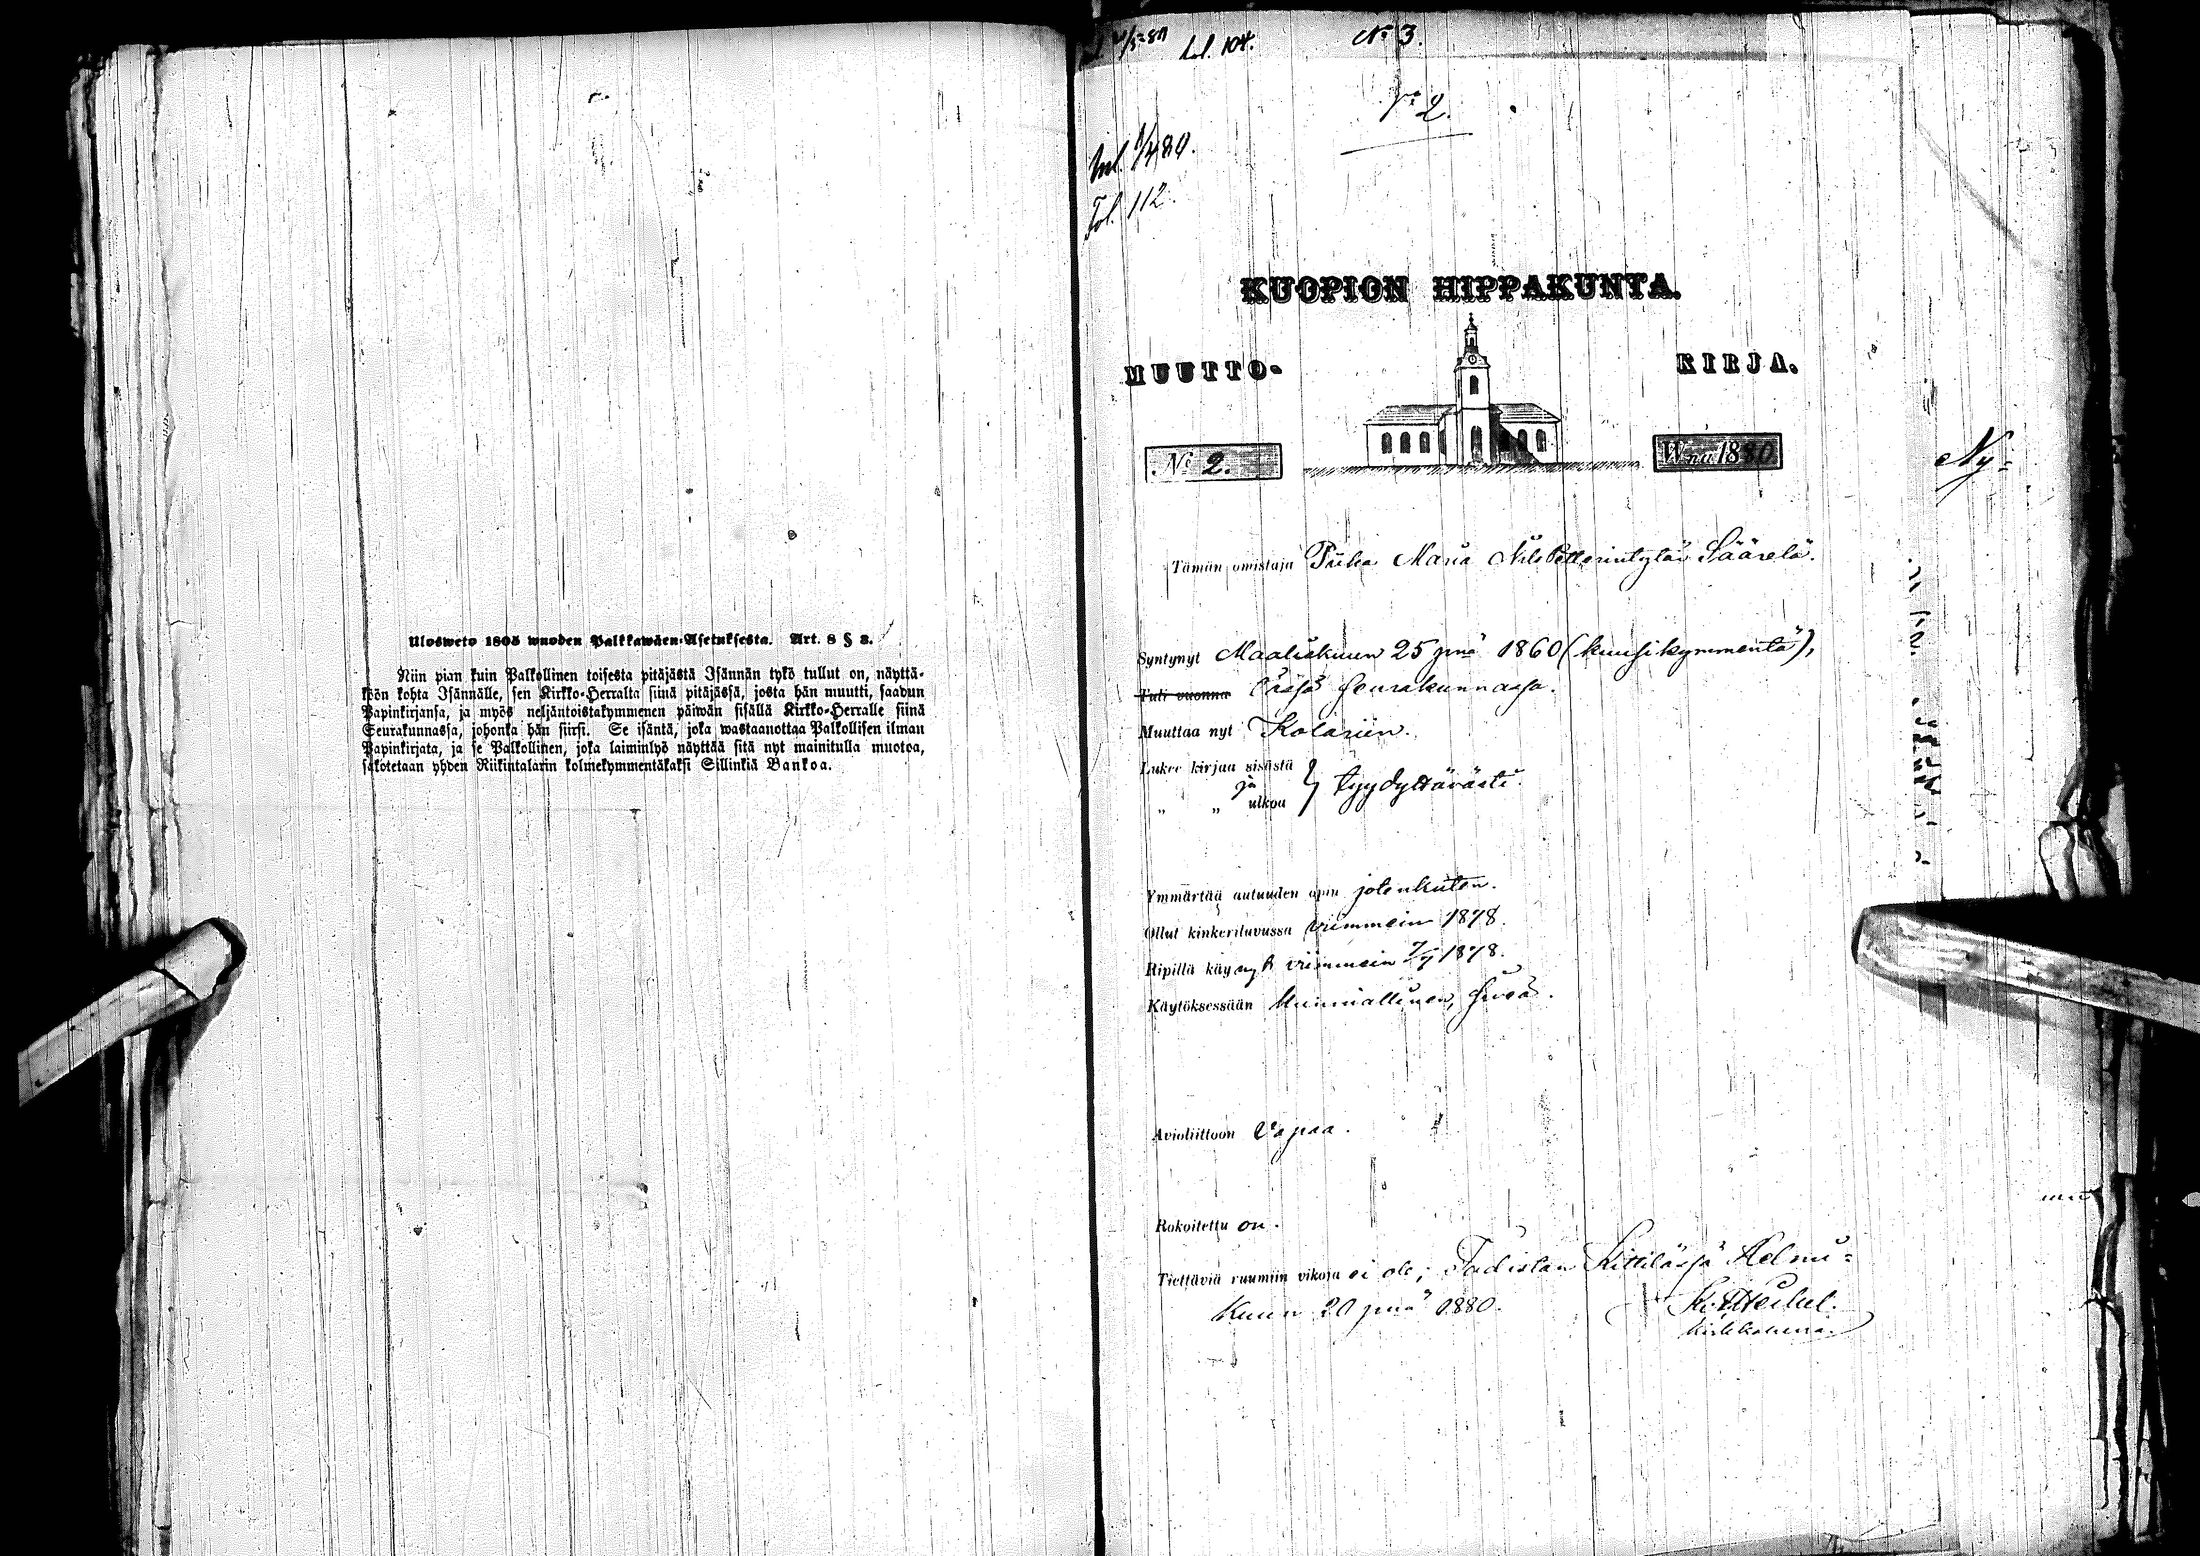 Ulosweto 1805 wuoden Palkkawäen-Asetuksesta. Art. 8 § 3.
Niin pian kuin Palkollinen toisesta pitäjästä Isännän tykö tullut on, näyttä-
köön kohta Isännälle, sen Kirkko-Herralta siinä pitäjässä, josta hän muutti, saadun
Papinkirjansa, ja myös neljäntoistakymmenen päiwän sisällä Kirkko-Herralle siinä
Seurakunnassa, johonka hän siirsi. Se isäntä, joka wastaanottaa Palkollisen ilman
Papinkirjata, ja se Palkollinen, joka laiminlyö näyttää sitä nyt mainitulla muotoa,
sakotetaan yhden Riikintalarin kolmekymmentäkaksi Sillinkiä Bankoa.
fol. 104. No 3.
No 2.
Inl. 1/4 80.
Fol. 112.
KUOPION HIPPAKUNTA.
MUUTTO- KIRJA.
No 2. W:na 1880
Tämän omistaja Piika Maria Nils Petterintytär Säärelä.
Syntynyt Maaliskuun 25 pnä 1860 (kuusikymmentä),
Tuli vuonna seurakunnassa.
Muuttaa nyt Kolariin.
Lukee kirjaa sisästä
ja } tyydyttävästi.
„ „ ulkoa
Ymmärtää autuuden opin jotenkuten.
Ollut kinkeriluvussa viimmein 1878.
Ripillä käynyt viimmein 7/7 1878.
Käytöksessään kunniallinen, siveä.
Avioliittoon vapaa.
Rokoitettu on.
Tiettäviä ruumiin vikoja ei ole; Todistan Kittilässä Helmi-
kuun 20 pnä 1880.
Kirkkoherra.
Ny-